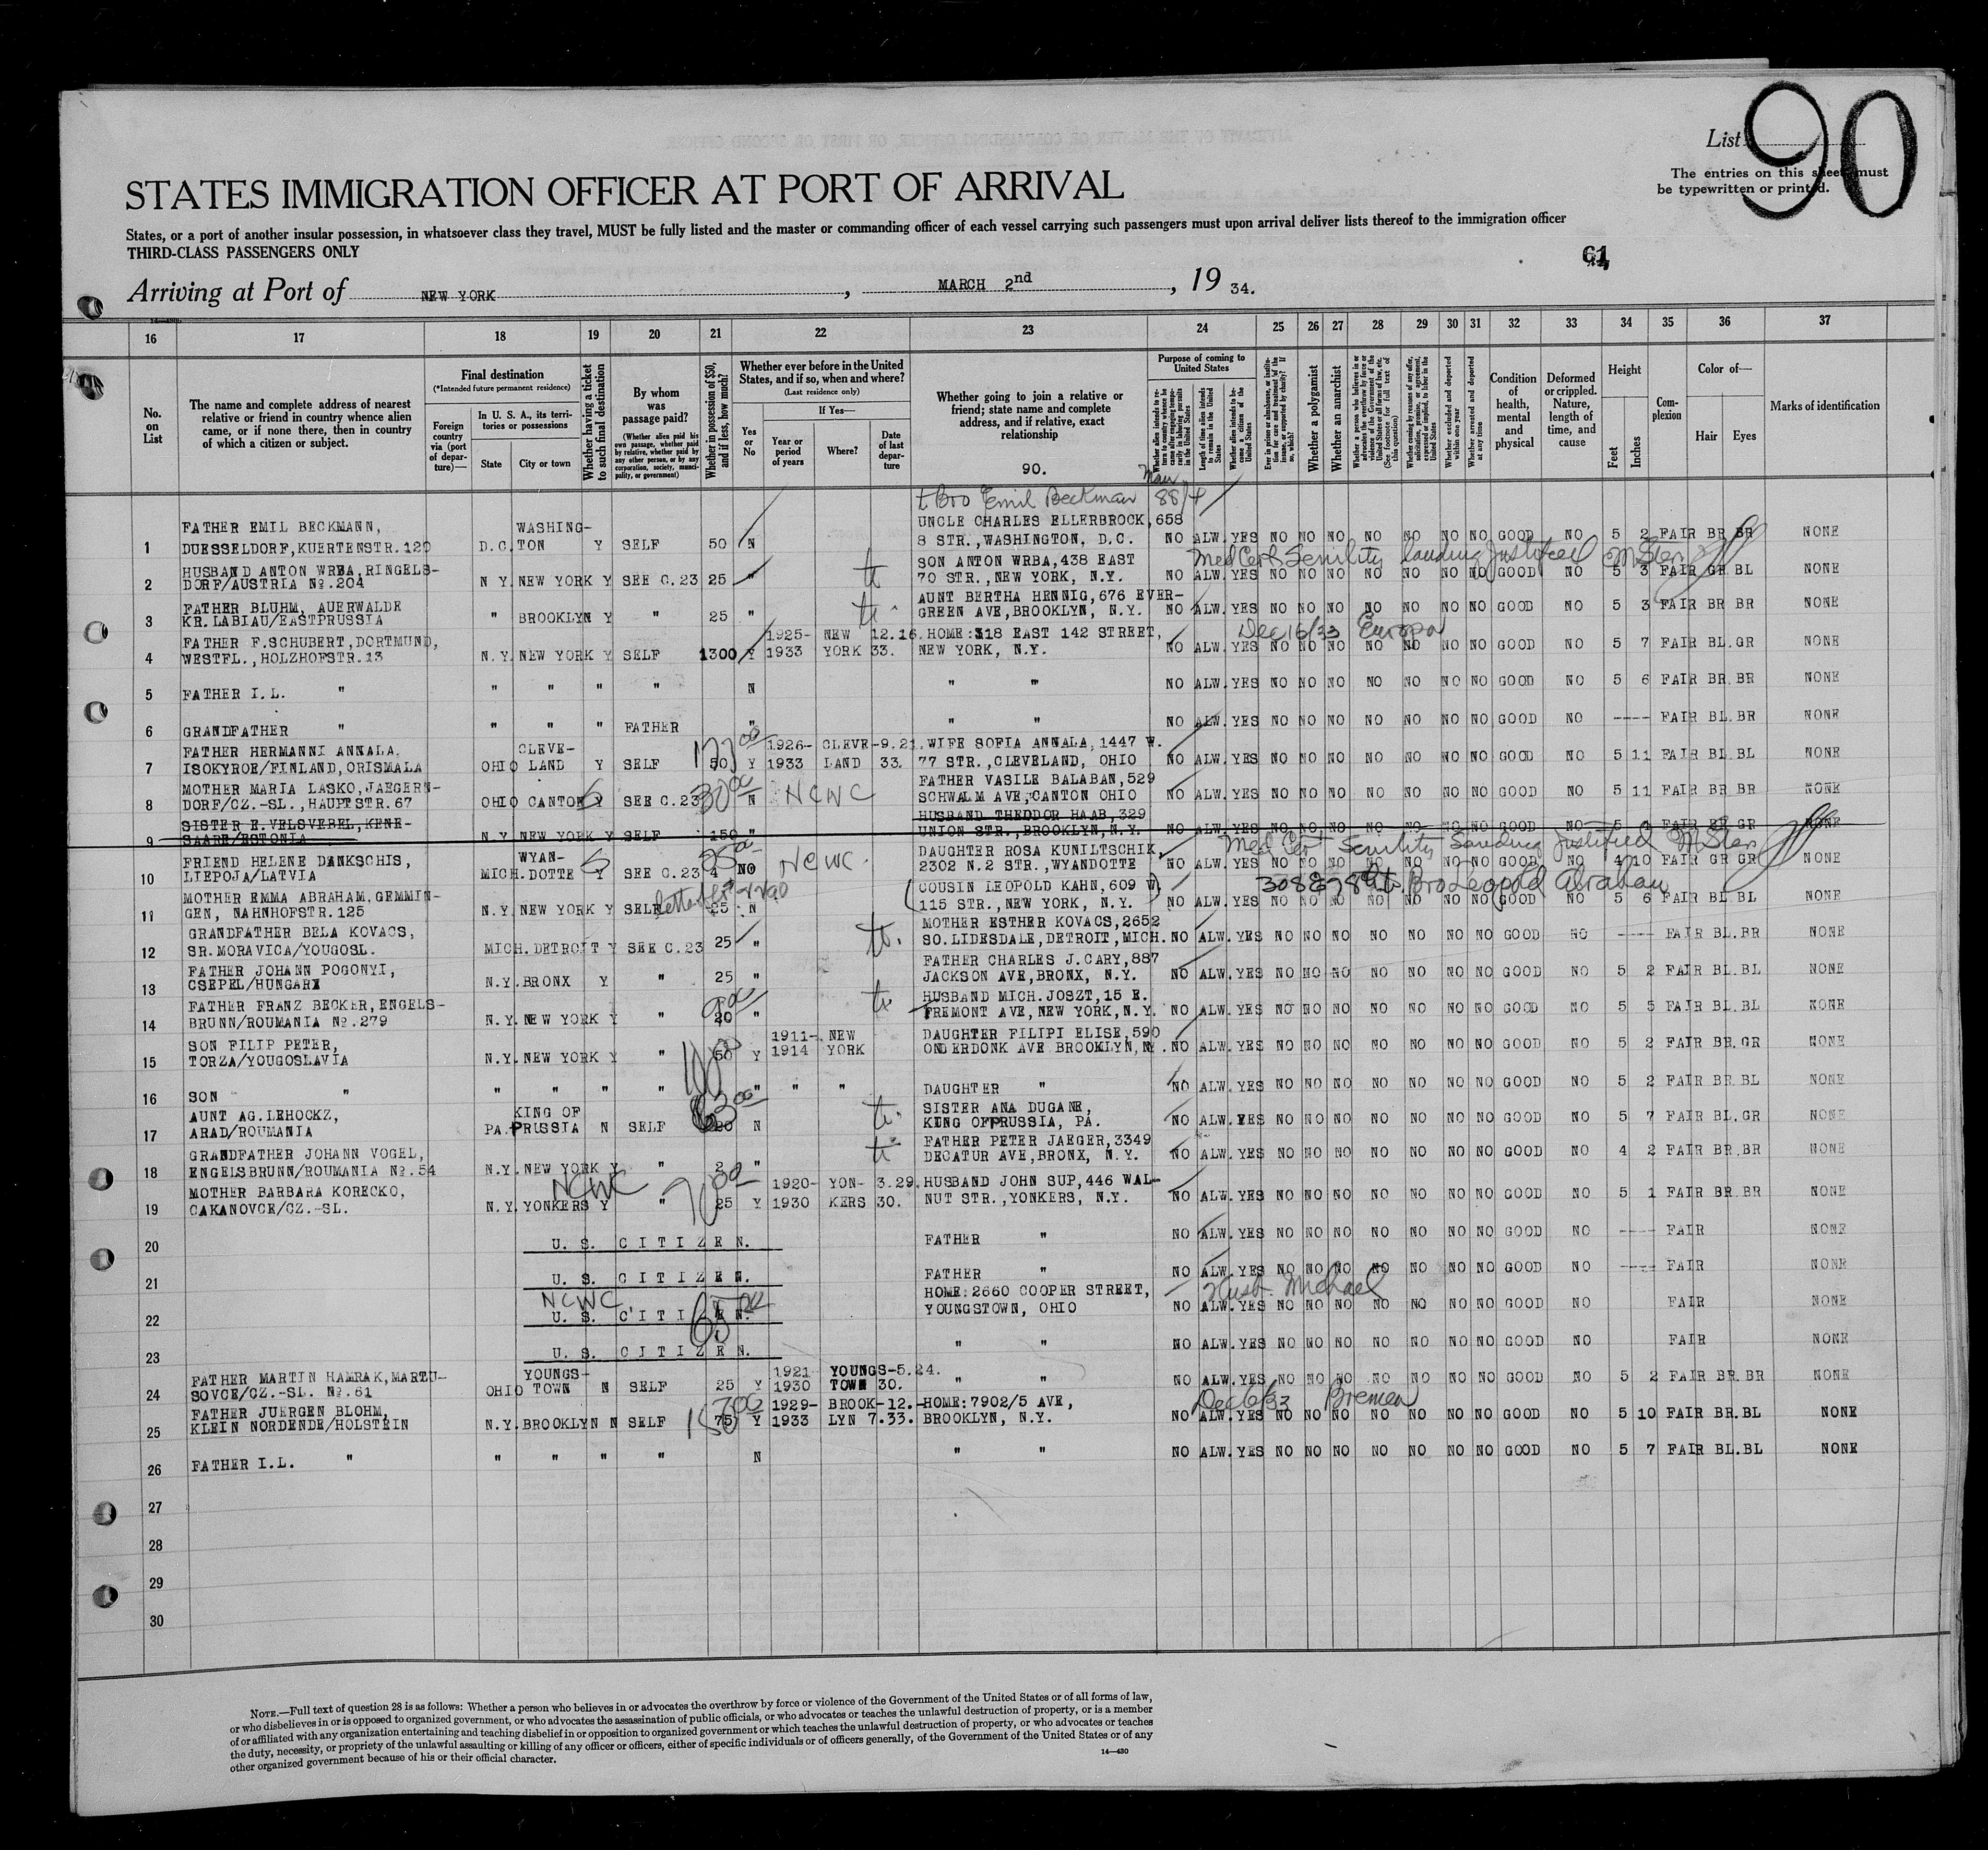 List 90
The entries on this sheet must
be typewritten or printed.
STATES IMMIGRATION OFFICER AT PORT OF ARRIVAL
States, or a port of another insular possession, in whatsoever class they travel, MUST be fully listed and the master or commanding officer of each vessel carrying such passengers must upon arrival deliver lists thereof to the immigration officer
THIRD-CLASS PASSENGERS ONLY
61
Arriving at Port of NEW YORK, MARCH 2nd, 19 34.
16 17 18 19 20 21 22 23 24 25 26 27 28 29 30 31 32 33 34 35 36 37
No. on List
The name and complete address of nearest relative or friend in country whence alien came, or if none there, then in country of which a citizen or subject.
Final destination
(*Intended future permanent residence)
Foreign country via (port of departure)—
In U. S. A., its territories or possessions
State City or town
Whether having a ticket to such final destination
By whom was passage paid?
(Whether alien paid his own passage, whether paid by relative, whether paid by any other person, or by any corporation, society, municipality, or government)
Whether in possession of $50, and if less, how much?
Whether ever before in the United States, and if so, when and where?
(Last residence only)
Yes or No
If Yes—
Year or period of years Where? Date of last departure
Whether going to join a relative or friend; state name and complete address, and if relative, exact relationship
90.
Purpose of coming to United States
Whether alien intends to return to country whence he came after engaging temporarily in laboring pursuits in the United States
Length of time alien intends to remain in the United States
Whether alien intends to become a citizen of the United States
Ever in prison or almshouse, or institution for care and treatment of the insane, or supported by charity? If so, which?
Whether a polygamist
Whether an anarchist
Whether a person who believes in or advocates the overthrow by force or violence of the Government of the United States or all forms of law, etc. (See footnote for full text of this question)
Whether coming by reason of any offer, solicitation, promise, or agreement, expressed or implied, to labor in the United States
Whether excluded and deported within one year
Whether arrested and deported at any time
Condition of health, mental and physical
Deformed or crippled. Nature, length of time, and cause
Height
Feet Inches
Complexion
Color of—
Hair Eyes
Marks of identification
Bro Emil Beckman 88/4
FATHER EMIL BECKMANN, WASHING- UNCLE CHARLES ELLERBROCK, 658
1 DUESSELDORF, KUERTENSTR. 120 D.C. TON Y SELF 50 N 8 STR., WASHINGTON, D.C. NO ALW. YES NO NO NO NO NO NO NO GOOD NO 5 2 FAIR BR BR NONE
Med Cert Senility landing Justified
HUSBAND ANTON WRBA, RINGELS- SON ANTON WRBA, 438 EAST
2 DORF/AUSTRIA No. 204 N Y. NEW YORK Y SEE C. 23 25 " 70 STR., NEW YORK, N.Y. NO ALW. YES NO NO NO NO NO NO NO GOOD NO 5 3 FAIR GR BL NONE
FATHER BLUHM, AUERWALDE AUNT BERTHA HENNIG, 676 EVER-
3 KR. LABIAU/EASTPRUSSIA " BROOKLYN Y " 25 " GREEN AVE, BROOKLYN, N.Y. NO ALW. YES NO NO NO NO NO NO NO GOOD NO 5 3 FAIR BR BR NONE
Dec 16/33 Europa
FATHER F. SCHUBERT, DORTMUND, 1925- NEW 12.16. HOME: 318 EAST 142 STREET,
4 WESTFL., HOLZHOFSTR. 13 N.Y. NEW YORK Y SELF 1300 Y 1933 YORK 33. NEW YORK, N.Y. NO ALW. YES NO NO NO NO NO NO NO GOOD NO 5 7 FAIR BL. GR NONE
5 FATHER I.L. " " " " " N " " NO ALW. YES NO NO NO NO NO NO NO GOOD NO 5 6 FAIR BR. BR NONE
6 GRANDFATHER " " " " FATHER " " " NO ALW. YES NO NO NO NO NO NO NO GOOD NO ---- FAIR BL. BR NONE
FATHER HERMANNI ANNALA, CLEVE- 1926- CLEVE- 9.21. WIFE SOFIA ANNALA, 1447 W.
7 ISOKYROE/FINLAND, ORISMALA OHIO LAND Y SELF 50 Y 1933 LAND 33. 77 STR., CLEVELAND, OHIO NO ALW. YES NO NO NO NO NO NO NO GOOD NO 5 11 FAIR BL BL NONE
MOTHER MARIA LASKO, JAEGERN- 30 00 NCWC FATHER VASILE BALABAN, 529
8 DORF/CZ.-SL., HAUPTSTR. 67 OHIO CANTON Y SEE C. 23 N SCHWALM AVE, CANTON OHIO NO ALW. YES NO NO NO NO NO NO NO GOOD NO 5 11 FAIR BR BR NONE
SISTER E. VELSVEBEL, KENE- HUSBAND THEDDOR HAAB, 329
9 SAARE/ESTONIA N.Y. NEW YORK Y SELF 150 " UNION STR., BROOKLYN, N.Y. NO ALW. YES NO NO NO NO NO NO NO GOOD NO 5 FAIR BR GR NONE
Med Cert Senility Landing Justified
FRIEND HELENE DANKSCHIS, WYAN- 25 00 NCWC DAUGHTER ROSA KUNILTSCHIK,
10 LIEPOJA/LATVIA MICH. DOTTE Y SEE C. 23 4 NO 2302 N. 2 STR., WYANDOTTE NO ALW. YES NO NO NO NO NO NO NO GOOD NO 4 10 FAIR GR GR NONE
Bro Leopold Abraham
MOTHER EMMA ABRAHAM, GEMMIN- COUSIN LEOPOLD KAHN, 609 W.
11 GEN, NAHNHOFSTR. 125 N.Y. NEW YORK Y SELF 25 N 115 STR., NEW YORK, N.Y. NO ALW. YES NO NO NO NO NO NO NO GOOD NO 5 6 FAIR BL BL NONE
GRANDFATHER BELA KOVACS, MOTHER ESTHER KOVACS, 2652
12 SR. MORAVICA/YOUGOSL. MICH. DETROIT Y SEE C. 23 25 " SO. LIDESDALE, DETROIT, MICH. NO ALW. YES NO NO NO NO NO NO NO GOOD NO ---- FAIR BL. BR NONE
FATHER JOHANN POGONYI, FATHER CHARLES J. CARY, 887
13 CSEPEL/HUNGARY N.Y. BRONX Y " 25 " JACKSON AVE, BRONX, N.Y. NO ALW. YES NO NO NO NO NO NO NO GOOD NO 5 2 FAIR BL. BL NONE
FATHER FRANZ BECKER, ENGELS- HUSBAND MICH. JOSZT, 15 E.
14 BRUNN/ROUMANIA No. 279 N.Y. NEW YORK Y " 20 " FREMONT AVE, NEW YORK, N.Y. NO ALW. YES NO NO NO NO NO NO NO GOOD NO 5 5 FAIR BL. BL NONE
SON FILIP PETER, 1911- NEW DAUGHTER FILIPI ELISE, 590
15 TORZA/YOUGOSLAVIA N.Y. NEW YORK Y " 50 Y 1914 YORK ONDERDONK AVE BROOKLYN, NY. NO ALW. YES NO NO NO NO NO NO NO GOOD NO 5 2 FAIR BR. GR NONE
16 SON " " " " " " " " DAUGHTER " NO ALW. YES NO NO NO NO NO NO NO GOOD NO 5 2 FAIR BR. BL NONE
AUNT AG. LEHOCKZ, KING OF SISTER ANA DUGANE,
17 ARAD/ROUMANIA PA. PRUSSIA N SELF 20 N KING OFPRUSSIA, PA. NO ALW. YES NO NO NO NO NO NO NO GOOD NO 5 7 FAIR BL. GR NONE
GRANDFATHER JOHANN VOGEL, FATHER PETER JAEGER, 3349
18 ENGELSBRUNN/ROUMANIA No. 54 N.Y. NEW YORK Y " 2 " DECATUR AVE, BRONX, N.Y. NO ALW. YES NO NO NO NO NO NO NO GOOD NO 4 2 FAIR BR. BR NONE
MOTHER BARBARA KORECKO, NCWC 1920- YON- 3.29. HUSBAND JOHN SUP, 446 WAL-
19 CAKANOVCE/CZ.-SL. N.Y. YONKERS Y " 25 Y 1930 KERS 30. NUT STR., YONKERS, N.Y. NO ALW. YES NO NO NO NO NO NO NO GOOD NO 5 1 FAIR BR. BR NONE
20 U. S. CITIZEN. FATHER " NO ALW. YES NO NO NO NO NO NO NO GOOD NO ---- FAIR NONE
21 U. S. CITIZEN. FATHER " NO ALW. YES NO NO NO NO NO NO NO GOOD NO ---- FAIR NONE
NCWC HOME: 2660 COOPER STREET, Husb. Michael
22 U. S. CITIZEN. YOUNGSTOWN, OHIO NO ALW. YES NO NO NO NO NO NO NO GOOD NO FAIR NONE
23 U. S. CITIZEN. " " NO ALW. YES NO NO NO NO NO NO NO GOOD NO FAIR NONE
FATHER MARTIN HAMRAK, MARTU- YOUNGS- 1921 YOUNGS- 5.24.
24 SOVCE/CZ.-SL. No. 61 OHIO TOWN N SELF 25 Y 1930 TOWN 30. " " NO ALW. YES NO NO NO NO NO NO NO GOOD NO 5 2 FAIR BR. BR NONE
Dec 6/33 Bremen
FATHER JUERGEN BLOHM, 1929- BROOK- 12.- HOME: 7902/5 AVE,
25 KLEIN NORDENDE/HOLSTEIN N.Y. BROOKLYN N SELF 75 Y 1933 LYN 7.33. BROOKLYN, N.Y. NO ALW. YES NO NO NO NO NO NO NO GOOD NO 5 10 FAIR BR. BL NONE
26 FATHER I.L. " " " " " N " " NO ALW. YES NO NO NO NO NO NO NO GOOD NO 5 7 FAIR BL. BL NONE
27
28
29
30
NOTE.—Full text of question 28 is as follows: Whether a person who believes in or advocates the overthrow by force or violence of the Government of the United States or of all forms of law,
or who disbelieves in or is opposed to organized government, or who advocates the assassination of public officials, or who advocates or teaches the unlawful destruction of property, or is a member
of or affiliated with any organization entertaining and teaching disbelief in or opposition to organized government or which teaches the unlawful destruction of property, or who advocates or teaches
the duty, necessity, or propriety of the unlawful assaulting or killing of any officer or officers, either of specific individuals or of officers generally, of the Government of the United States or of any
other organized government because of his or their official character.
14—430